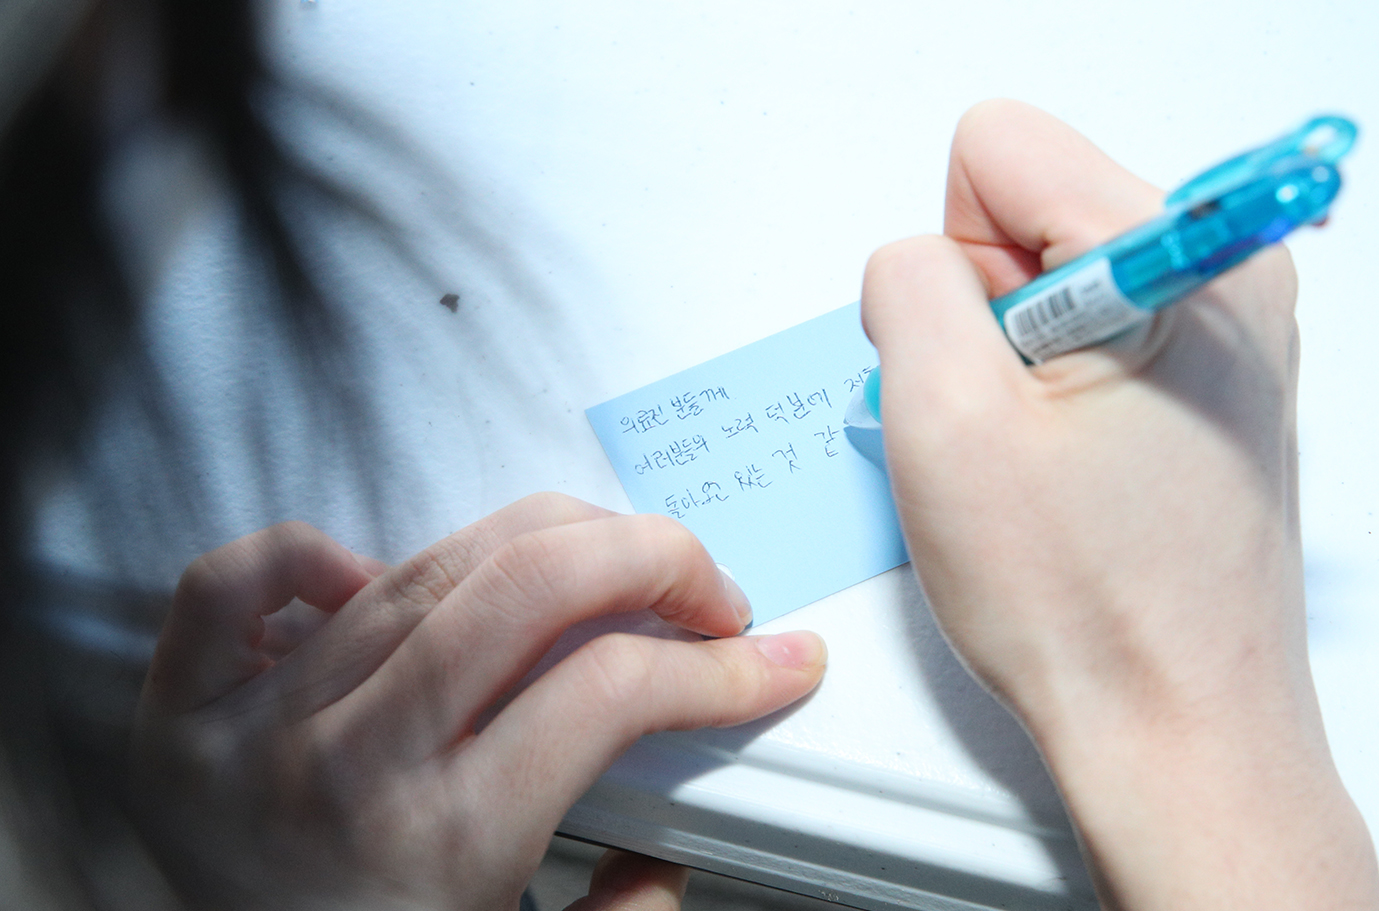 의료진 분들께
여러분들의 노력 덕분에
돌아오고 있는 것 같